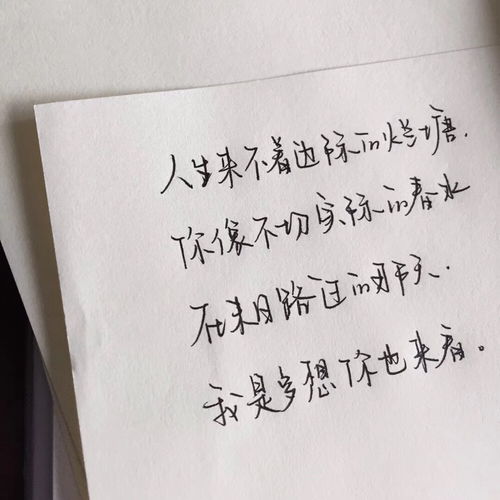 人生来不着边际的烂塘,
你像不切实际的春水
在来日路过的天.
我是多想你也来看。